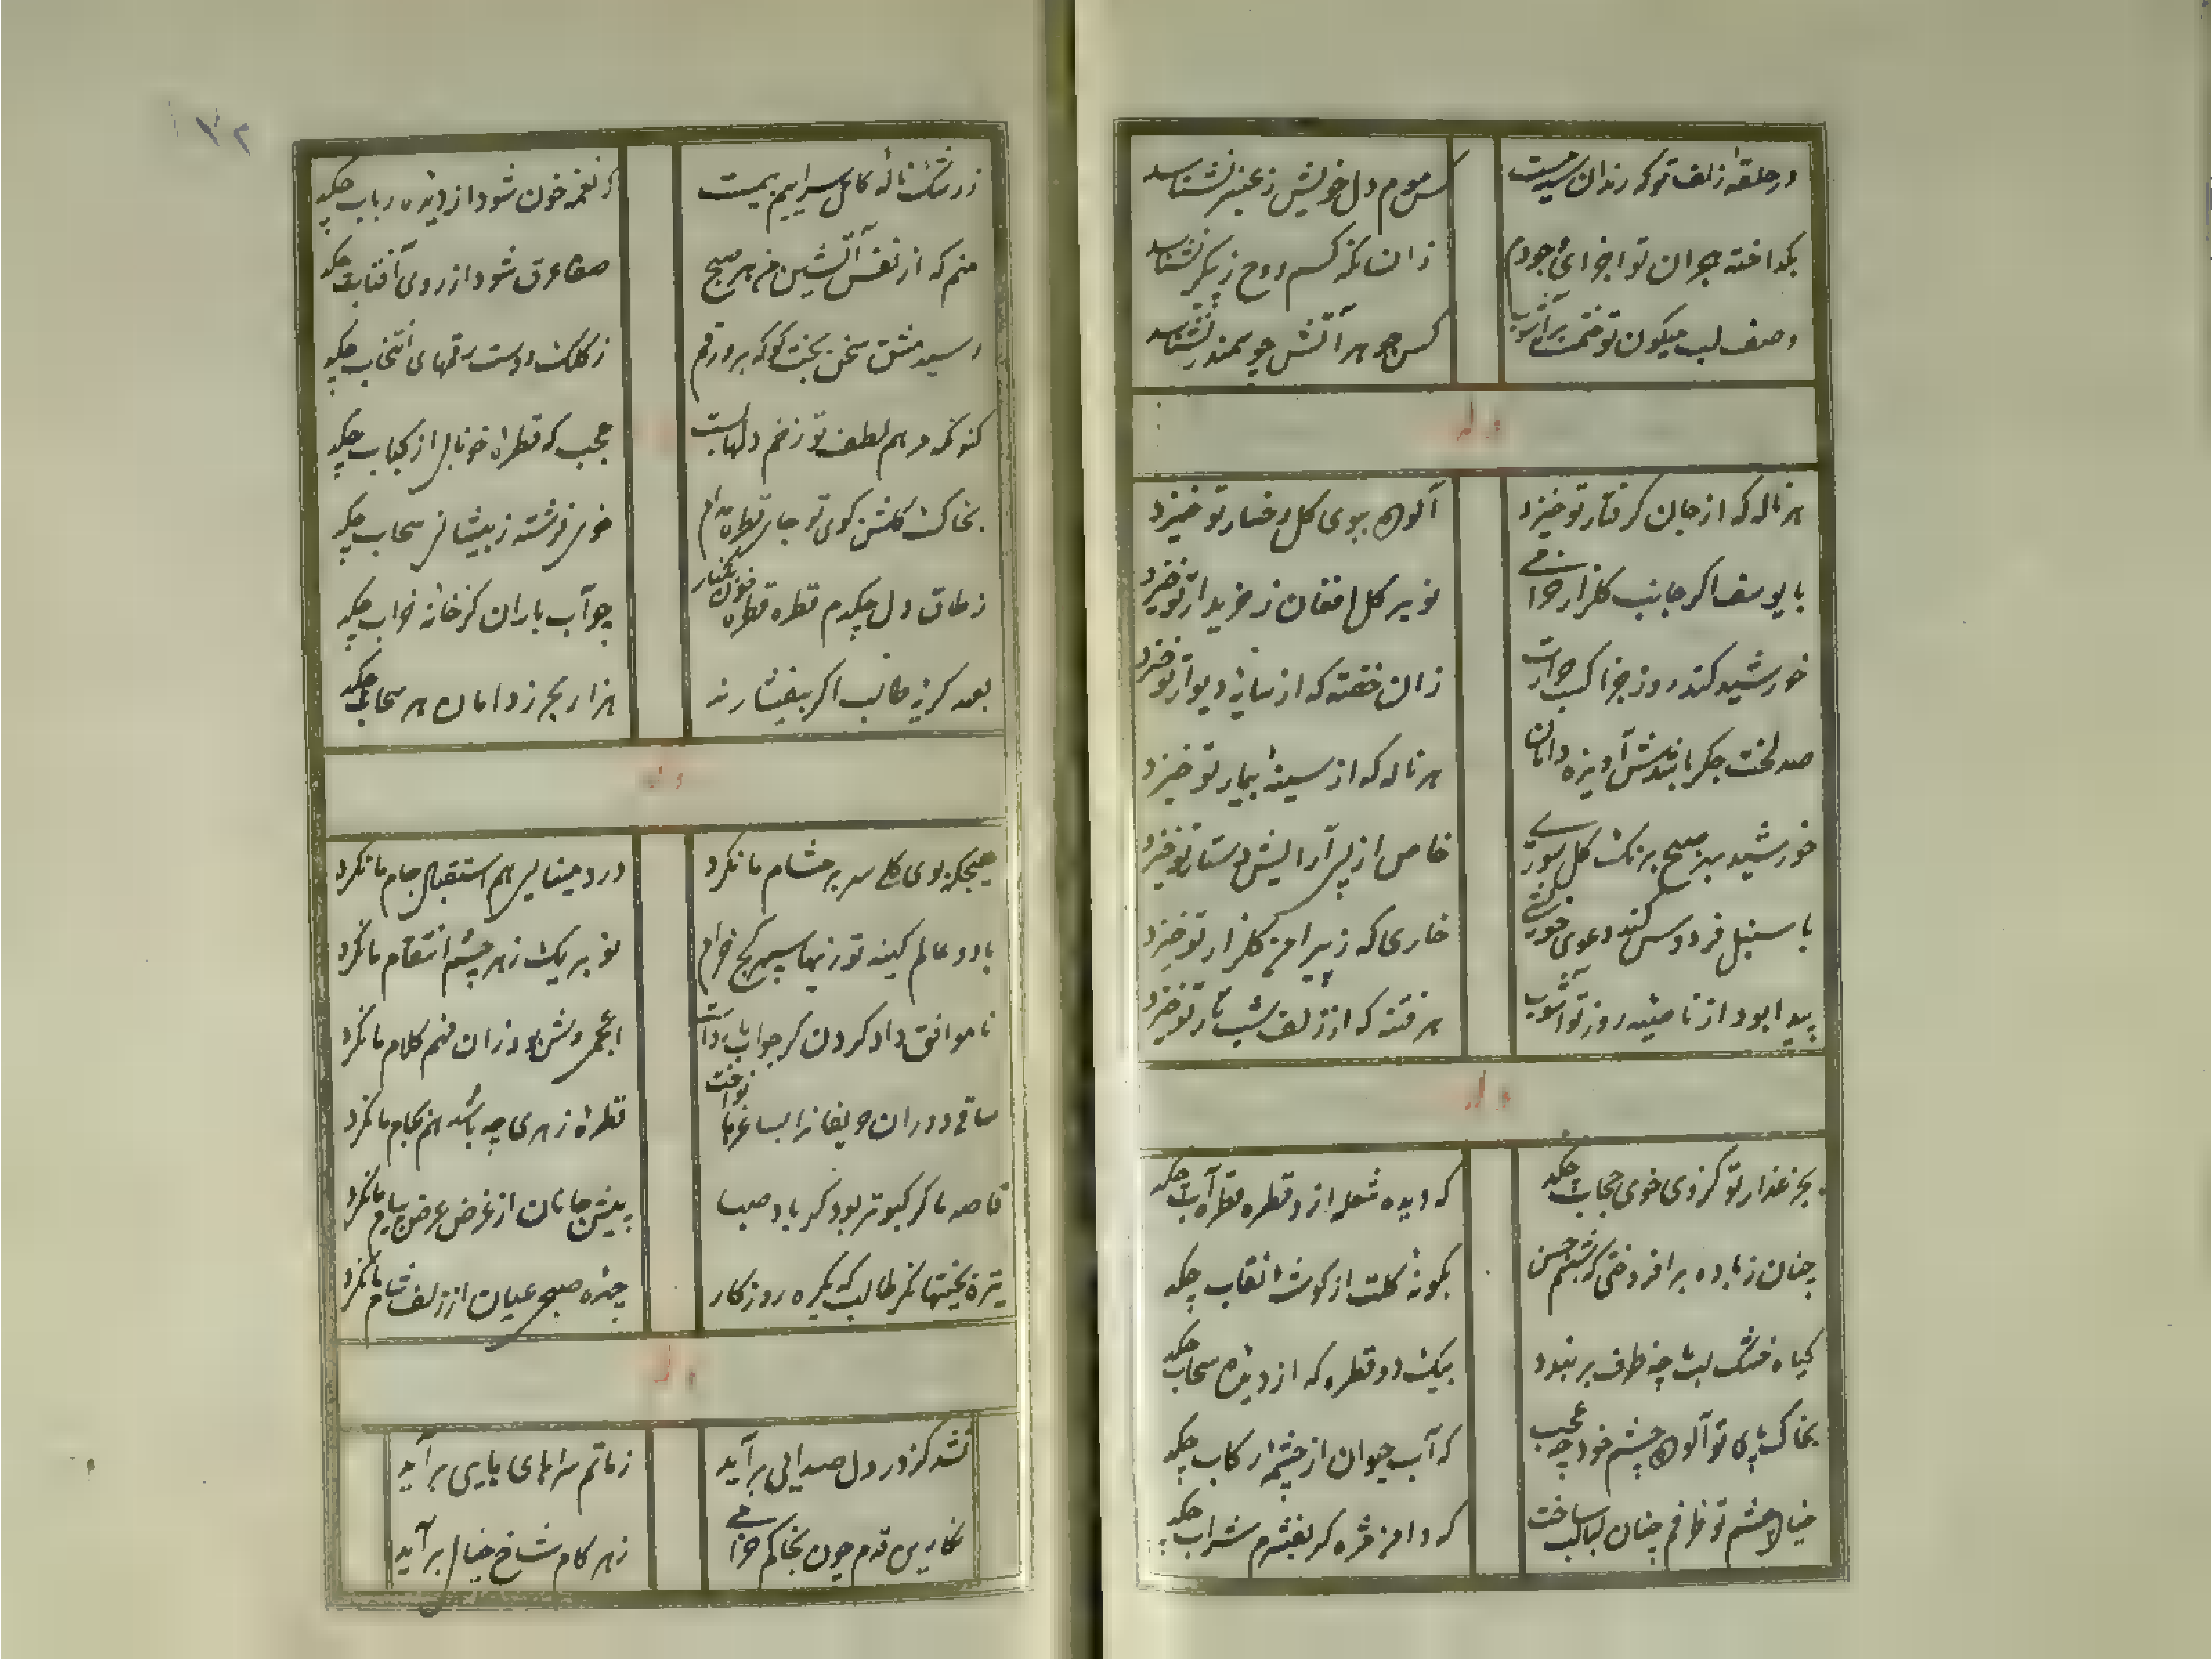 در حلقهٔ زلف تو که رندان
کس موم دل خویش ز عنبر نشناسد
بکداخته هجران تو اجزای وجودم
زانسانکه کسم روح ز پیکر نشناسد
وصف لب میکون تو
کس جوهر آتش چو سمندر نشناسد
وله
هر ناله که از جان کرفتار تو خیزد
آلوده ببوی کل رخسار تو خیزد
با یوسف اکر جانب کلزار خرامی
نوبر کل افغان ز خریدار تو خیزد
خورشید کند روز جزا کسب حرارت
زان خفته که از سایهٔ دیوار تو خیزد
صد لخت جکر دامان
هر ناله که از سینهٔ بیمار تو خیزد
خورشید بهر صبح برنک کل سوری
خاص از پی آرایش دستار تو خیزد
با سنبل فردوس کند دعوی خویشی
خاری که ز پیرامن کلزار تو خیزد
پیدا بود از ناصیهٔ روز تو آشوب
هر فتنه که از زلف شب تار تو خیزد
وله
بجز عذار تو کز وی خوی حجاب چکد
که دیده شعله ازو قطره قطره آب چکد
چنان ز باده برافروختی که شبنم حسن
بکونه کلت از کوشهٔ نقاب چکد
کیاه خشک لب ما چه طرف بربندد
بیک دو قطره که از دیدهٔ سحاب چکد
بخاک پای تو آلوده چشم خود چه عجب
که آب حیوان از چشم رکاب چکد
خیال چشم تو ظرفم چنان لبالب ساخت
که دامن مژه کر بفشرم شراب چکد
ز رشک نالهٔ
که نغمه خون شود از دیدهٔ رباب چکد
منم که از نفس آتشین من هر صبح
صفا عرق شود از روی آفتاب چکد
رسید مشق سخن
ز کلک دوست رقمهای انتخاب چکد
کنونکه مرهم لطف تو زخم دلهاست
عجب که قطرهٔ خونابی از کباب چکد
بخاک کلشن کوی تو جای قطرهٔ
خوی فرشته ز پیشانی سحاب چکد
ز طاق دل چکدم قطره قطره خون بکنار
چو آب باران کز خانهٔ خراب چکد
بعهد کریهٔ طالب اکر بیفشارند
هزار بحر ز دامان هر سحاب چکد
وله
هیچکه بوی کلی سر بر مشام ما نکرد
درد مینایی هم استقبال جام ما نکرد
با دو عالم کینه توزیها سپهر کج خرام
نوبر یک زهر چشم انتقام ما نکرد
ناموافق داد کردون
فهم کلام ما نکرد
ساقی دوران حریفانرا بساغرها نواخت
قطرهٔ زهری چه باشد هم بکام ما نکرد
قاصد ما کر کبوتر بود کر باد صبا
پیش جانان از غرض عرض پیام ما نکرد
تیره بختیها نکر طالب که یکره روزکار
چهرهٔ صبحی عیان از زلف شام ما نکرد
وله
نشد کز در دل صدایی برآید
ز ماتم سرا های هایی برآید
نکارین قدم چون بخاکم خرامی
ز هر کام شاخ حنایی برآید